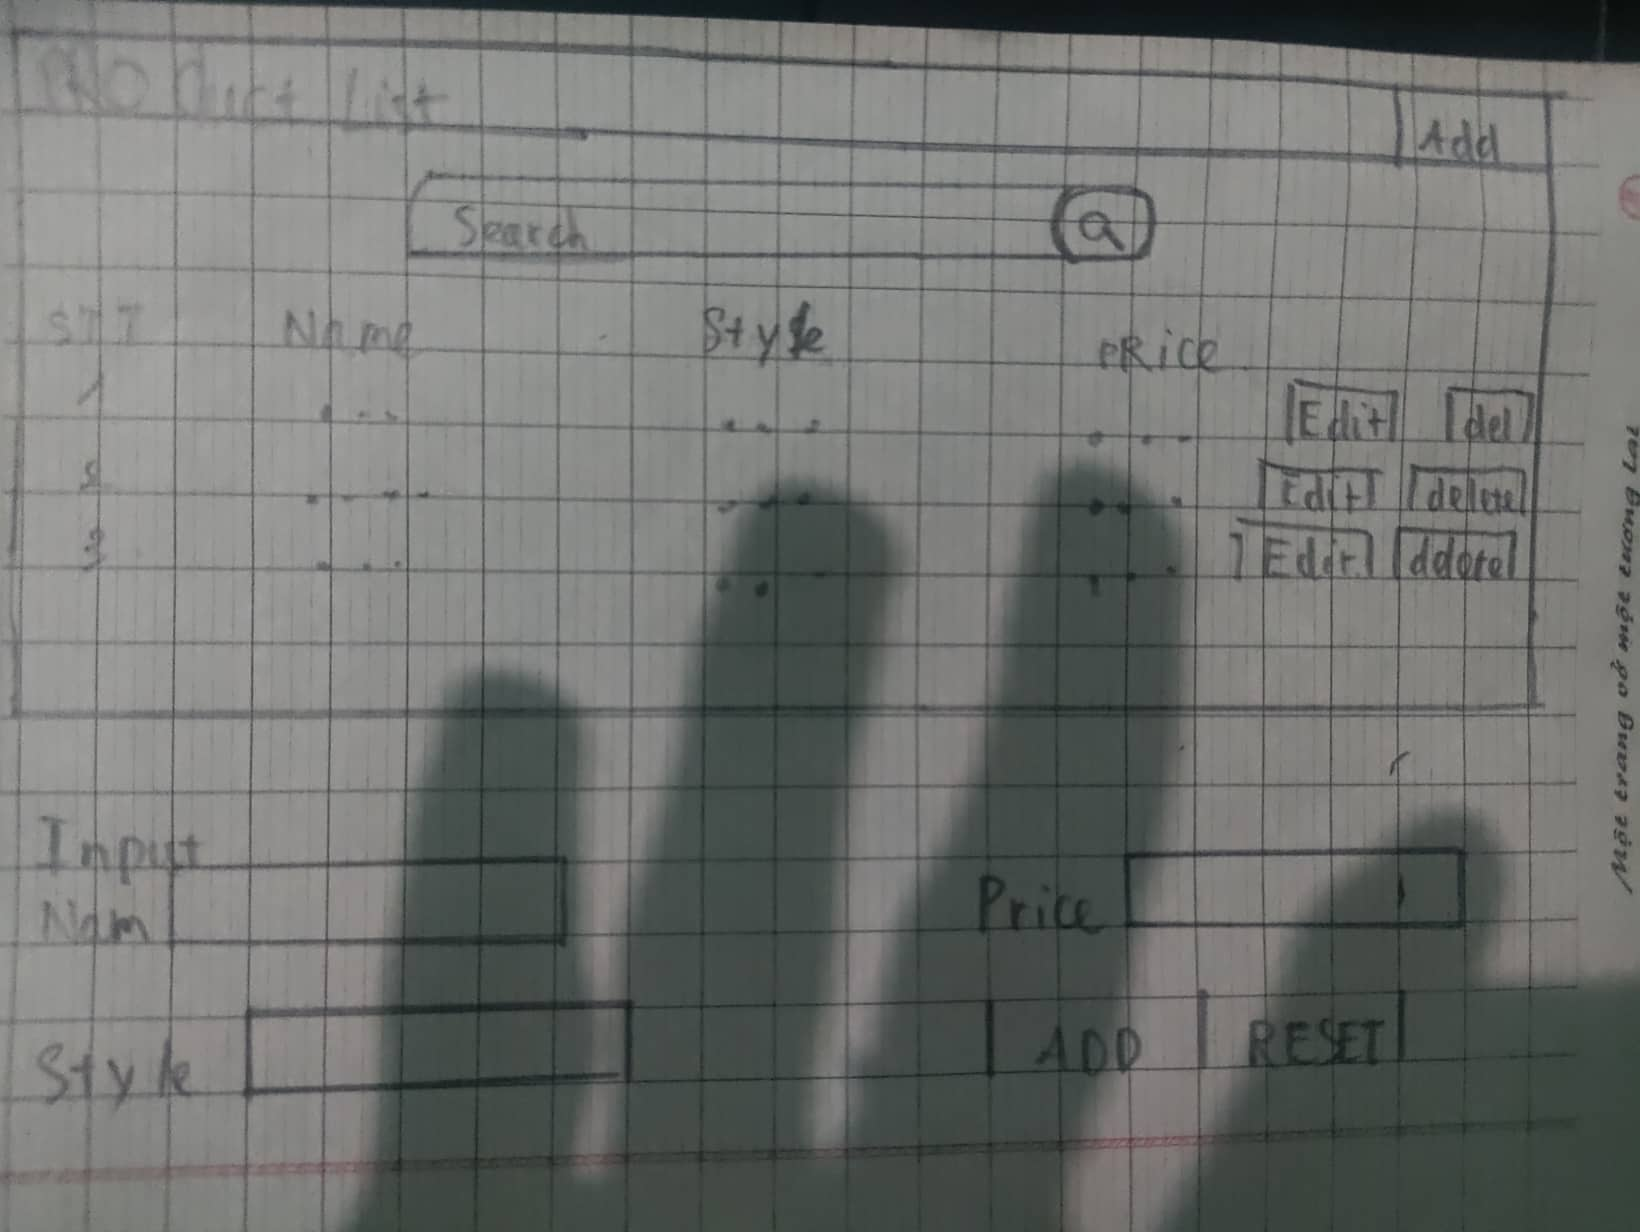 PRODuct List
Add
Search
STT Name Style PRice
1 Edit del
2 Edit delete
3 Edit delete
Input
Nam
Price
Style
ADD RESET
Một trang vở một tương lai